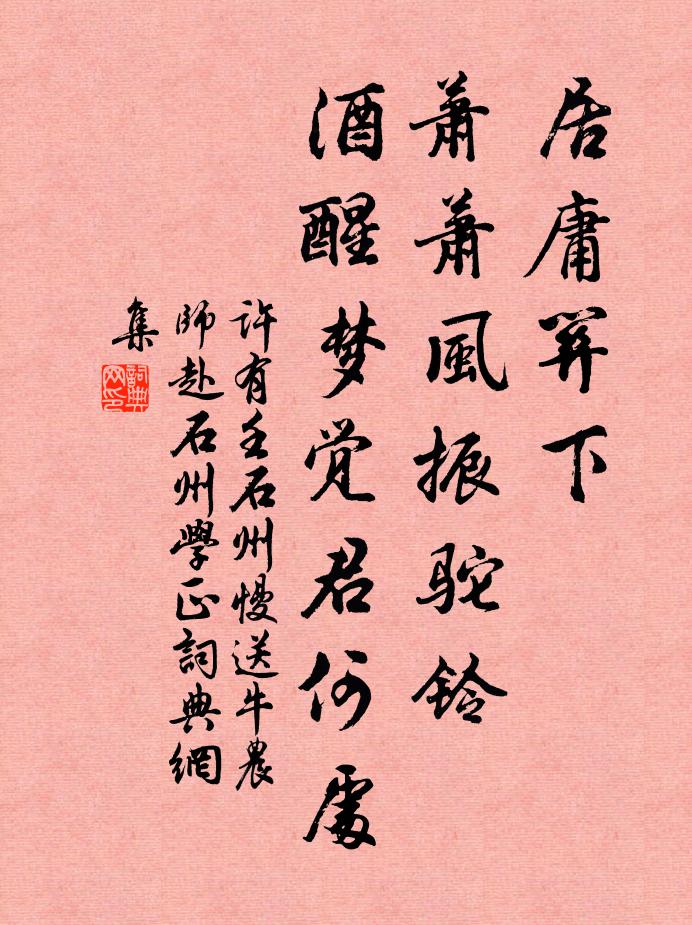 居庸關下
蕭蕭風振駝鈴
酒醒梦觉君何處
許有壬石州慢送牛農
師赴石州學正詞典網
集
詞典网印